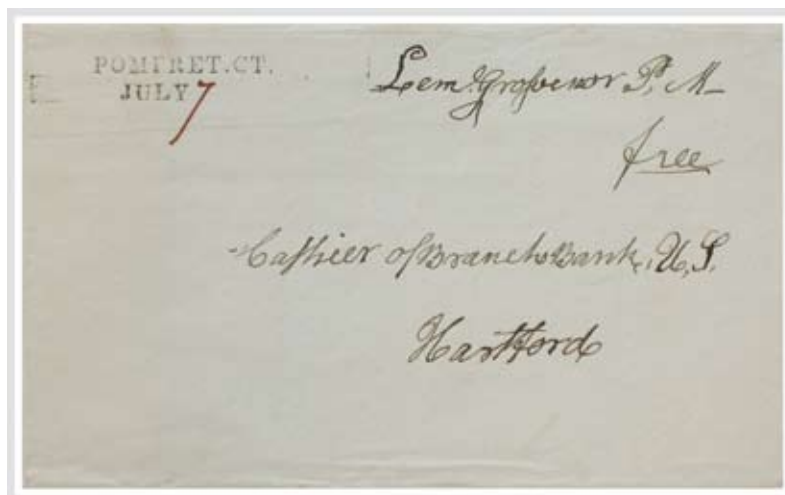 POMFRET.CT.
JULY 7
Lem. Grosvenor P. M
free
Cashier of Branch Bank, U, S.
Hartford